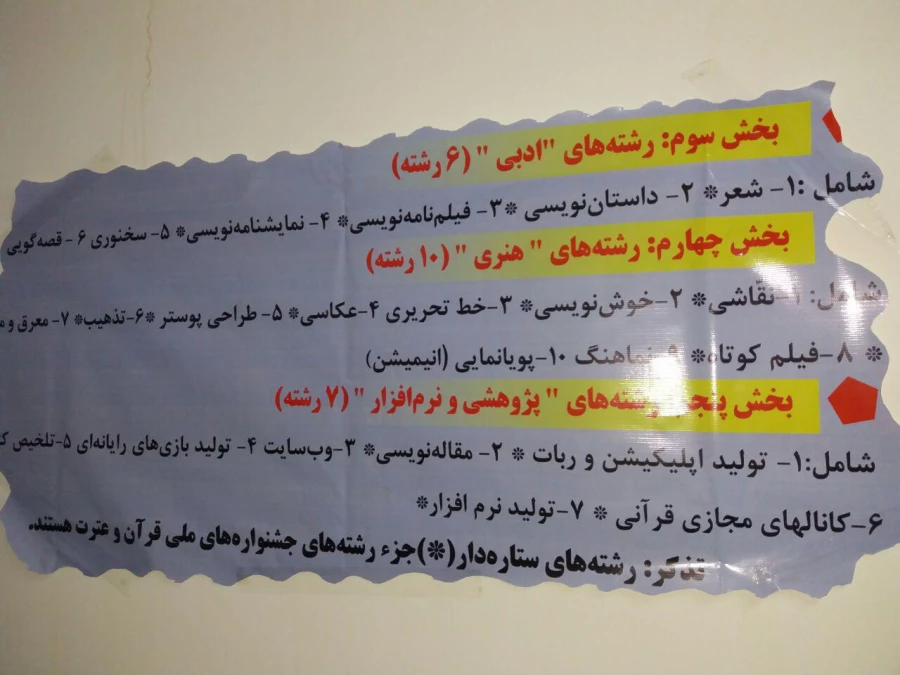 بخش سوم: رشته‌های "ادبی" (۶ رشته)
شامل :۱- شعر* ۲- داستان‌نویسی *۳- فیلم‌نامه‌نویسی* ۴- نمایشنامه‌نویسی* ۵- سخنوری ۶- قصه‌گویی
بخش چهارم: رشته‌های " هنری " (۱۰ رشته)
شامل: ۱-نقّاشی* ۲-خوش‌نویسی* ۳-خط تحریری ۴-عکاسی* ۵- طراحی پوستر *۶-تذهیب* ۷- معرق و
* ۸-فیلم کوتاه* ۹-نماهنگ ۱۰-پویانمایی (انیمیشن)
بخش پنجم: رشته‌های " پژوهشی و نرم‌افزار " (۷ رشته)
شامل:۱- تولید اپلیکیشن و ربات * ۲- مقاله‌نویسی* ۳-وب‌سایت ۴- تولید بازی‌های رایانه‌ای ۵-تلخیص
۶-کانالهای مجازی قرآنی * ۷-تولید نرم افزار*
تذکر: رشته‌های ستاره‌دار(*)جزء رشته‌های جشنواره‌های ملی قرآن و عترت هستند.